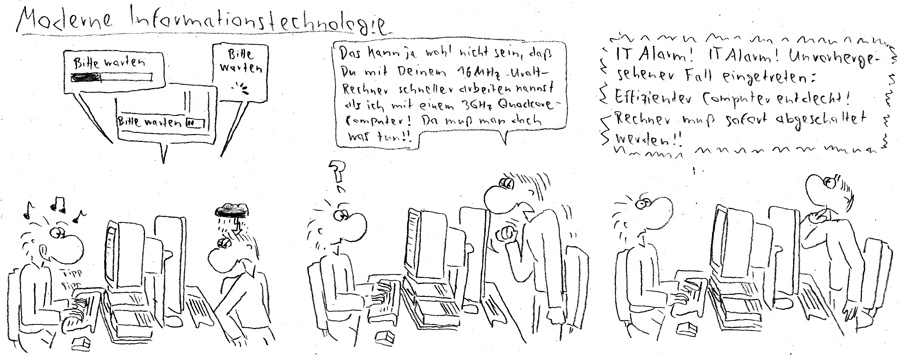 Moderne Informationstechnologie
Bitte warten
Bitte warten
Bitte
warten
Tipp
Tipp
?
Das kann ja wohl nicht sein, daß
Du mit Deinem 16MHz-Uralt-
Rechner schneller arbeiten kannst
als ich mit einem 3GHz Quadcore-
Computer! Da muß man doch
was tun!!
IT Alarm! IT Alarm! Unvorherge-
sehener Fall eingetreten:
Effizienter Computer entdeckt!
Rechner muß sofort abgeschaltet
werden!!